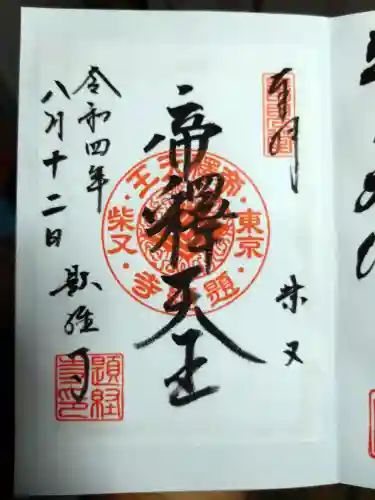 奉拝
柴又
帝釋天王
令和四年
八月十二日
題経寺
東京
柴又
題経
寺印